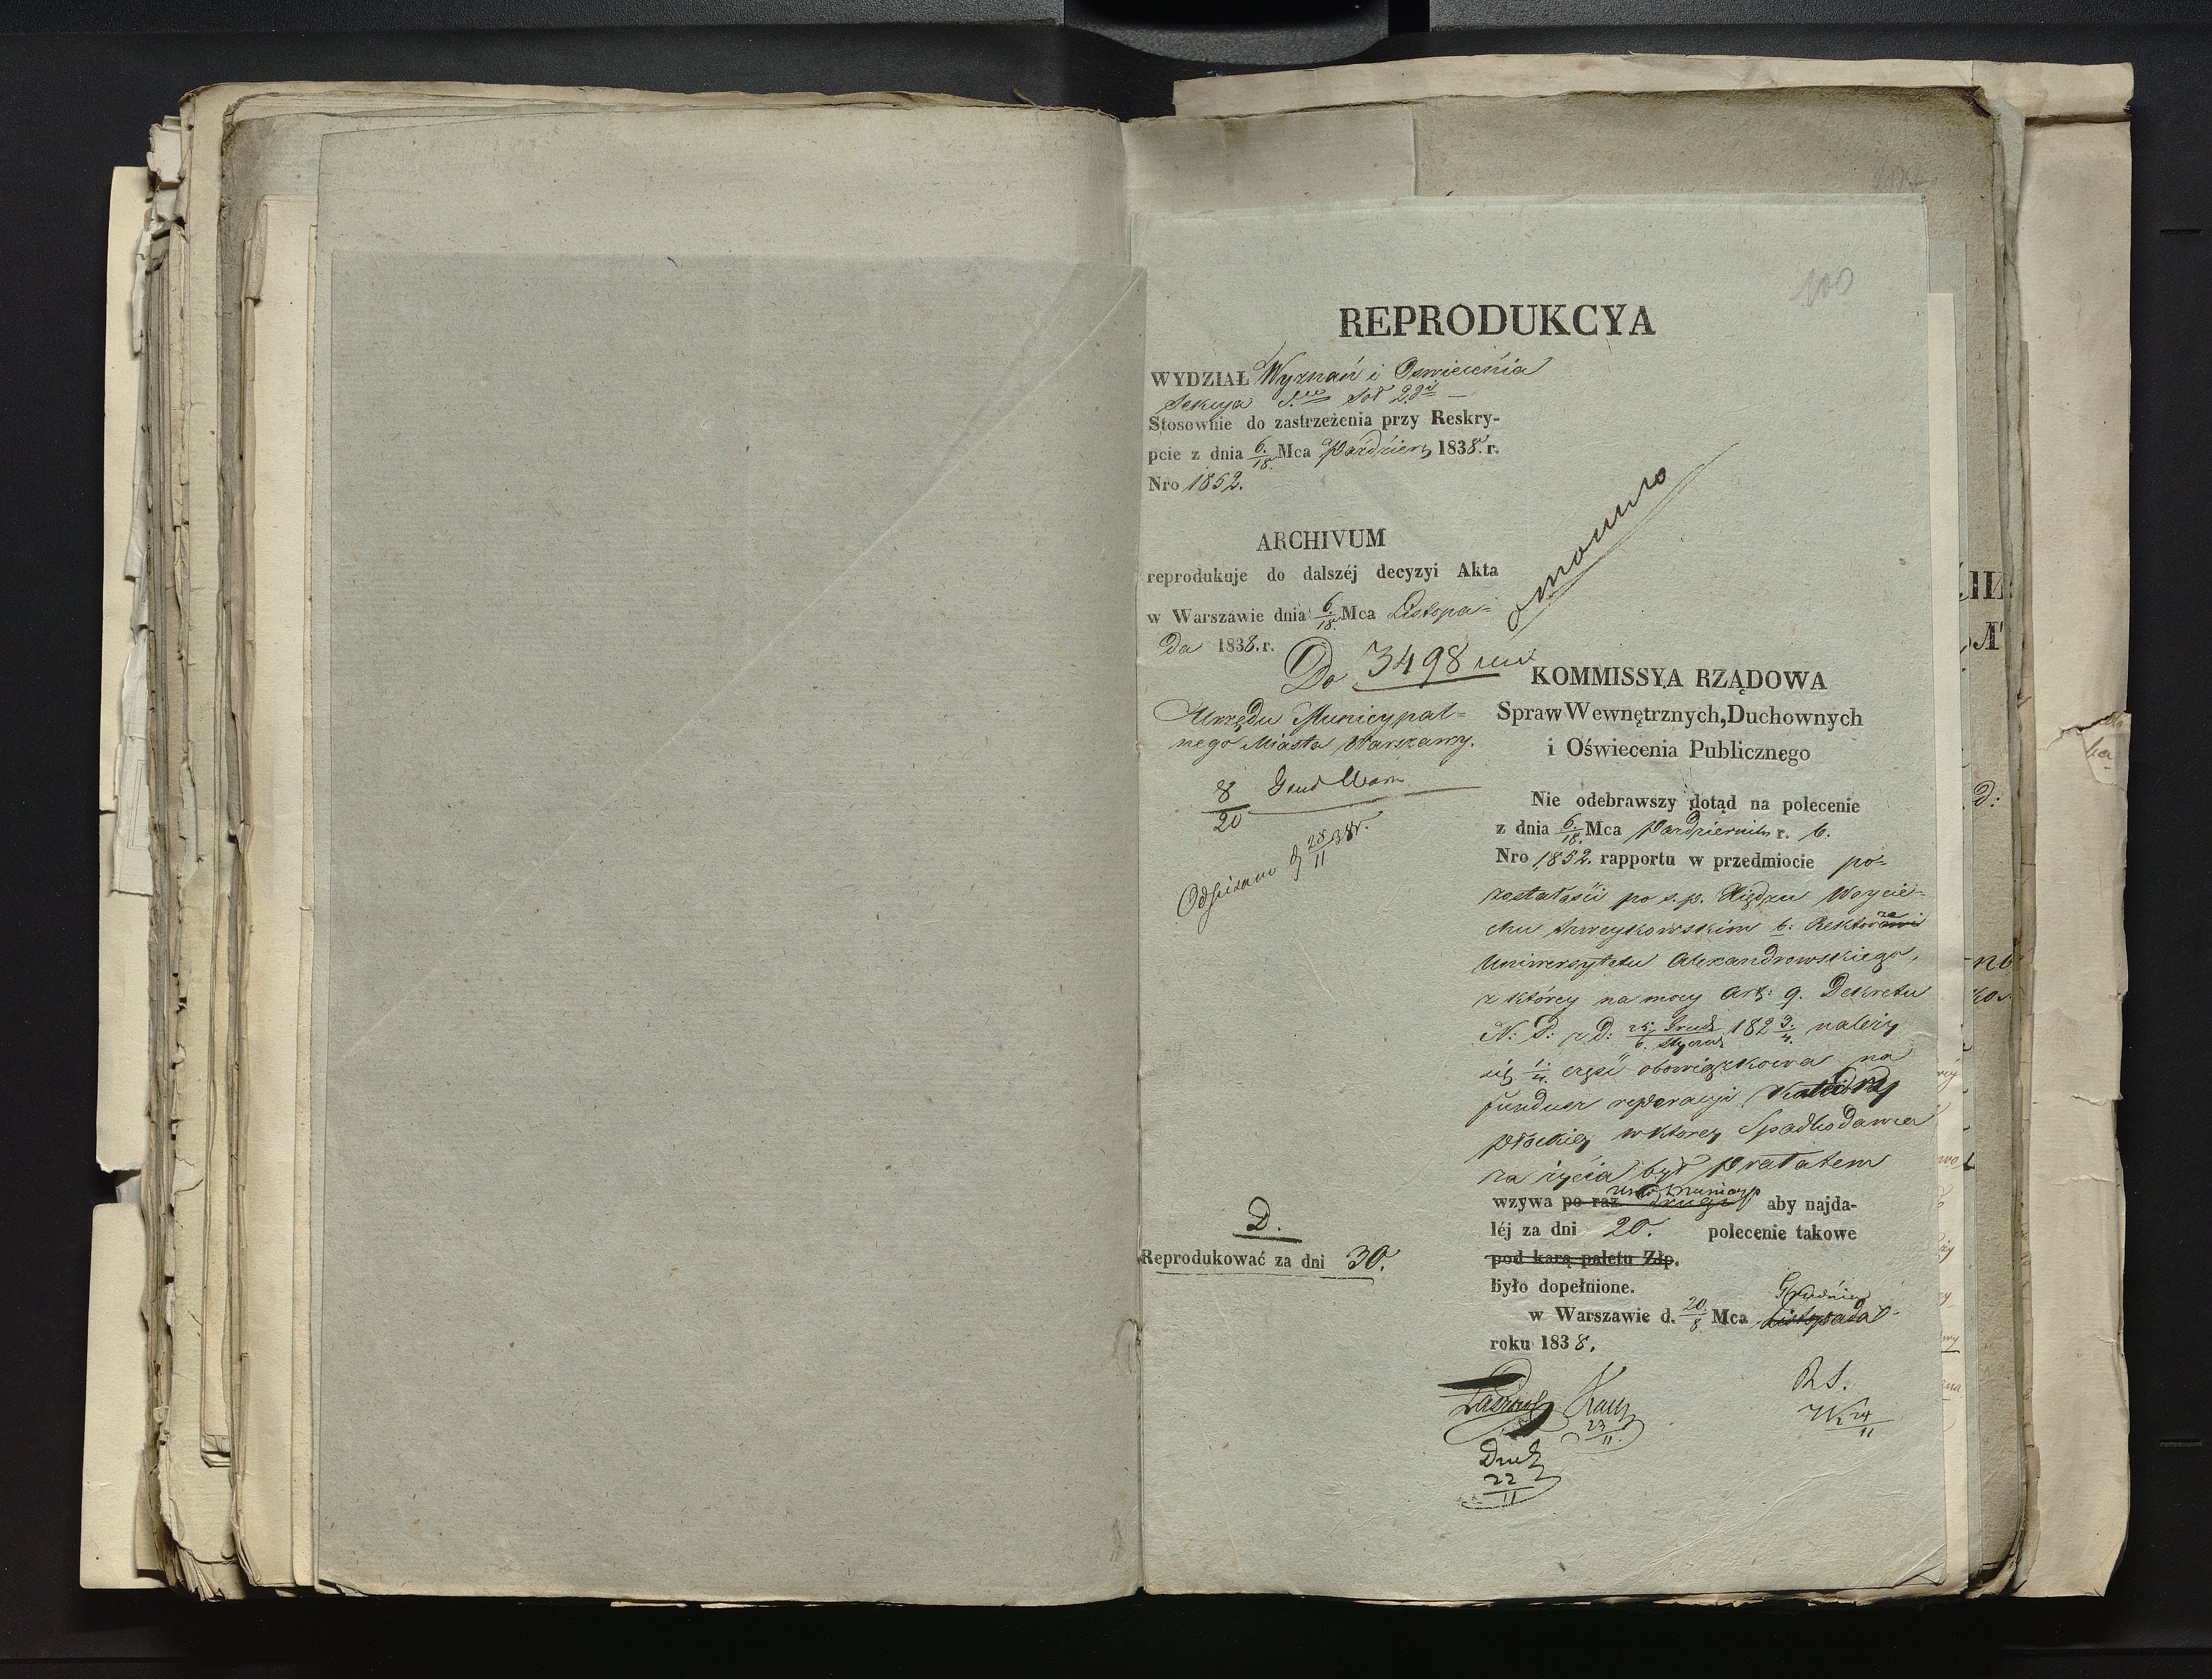 100
REPRODUKCYA
WYDZIAŁ Wyznań i Oswiecenia
Sekcya
Stosownie do zastrzeżenia przy Reskry-
pcie z dnia 6./18. Mca Paździer 1838. r.
Nro 1852.
ARCHIVUM
reprodukuje do dalszéj decyzyi Akta
w Warszawie dnia 6/18. Mca Listopa=
da 1838. r.
Do 3498
Urzędu Municypal=
nego Miasta Warszawy.
8/20 Grud
Odpisano d 28/11 38r.
D.
Reprodukować za dni 30.
KOMMISSYA RZĄDOWA
Spraw Wewnętrznych, Duchownych
i Oświecenia Publicznego
Nie odebrawszy dotąd na polecenie
z dnia 6./18. Mca Pazdziernik r. b.
Nro 1852. rapportu w przedmiocie po=
zostałości po s. p. Xiędzu Woycie-
chu Szweykowskim b: Rektorze
Uniwersytetu Alexandrowskiego,
z którey na mocy Art: 9. Dekretu
N: P: z D: 25. Grud/6. Stycznia 1823./4. należy
się 1./4. część obowiązkowa na
fundusz reperacyi Katedry
płockiey w ktorey Spadkodawca
za życia był Prałatem
wzywa po raz drugi Urząd Municyp aby najda-
léj za dni 20. polecenie takowe
pod karą paletu Złp.
było dopełnione.
w Warszawie d. 20./8 Mca Listopada Grudnia
roku 1838.
23/11.
22/11
R S.
24/11